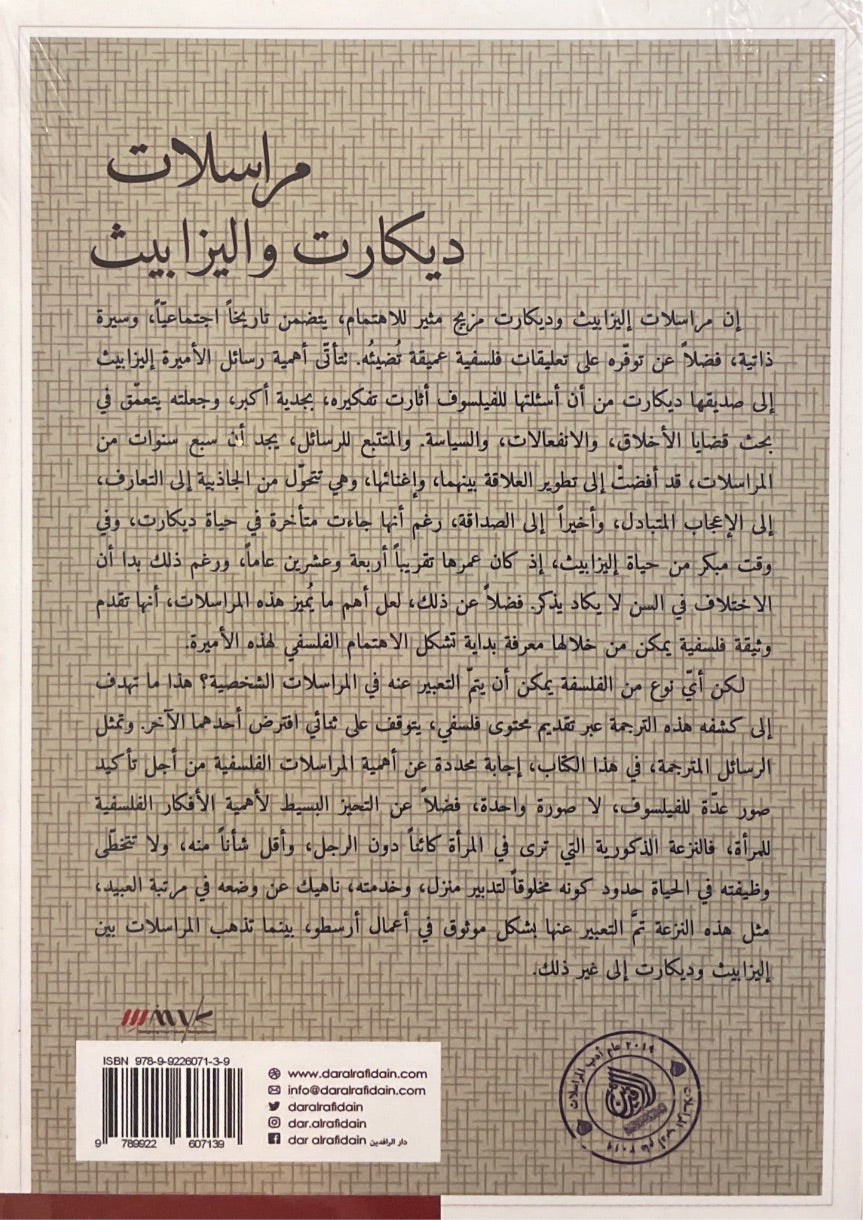 مراسلات
ديكارت واليزابيث
إن مراسلات إليزابيث وديكارت مزيج مثير للاهتمام، يتضمن تاريخاً اجتماعيّاً، وسيرة
ذاتية، فضلاً عن توفّره على تعليقات فلسفية عميقة تُضيئُه. تتأتّى أهمية رسائل الأميرة إليزابيث
إلى صديقها ديكارت من أن أسئلتها للفيلسوف أثارت تفكيره، بجدية أكبر، وجعلته يتعمّق في
بحث قضايا الأخلاق، والانفعالات، والسياسة. والمتتبع للرسائل، يجد أن سبع سنوات من
المراسلات، قد أفضتْ إلى تطوير العلاقة بينهما، وإغنائها، وهي تتحوّل من الجاذبية إلى التعارف،
إلى الإعجاب المتبادل، وأخيراً إلى الصداقة، رغم أنها جاءت متأخرة في حياة ديكارت، وفي
وقت مبكر من حياة إليزابيث، إذ كان عمرها تقريباً أربعة وعشرين عاماً، ورغم ذلك بدا أن
الاختلاف في السن لا يكاد يذكر. فضلاً عن ذلك، لعل أهم ما يُميز هذه المراسلات، أنها تقدم
وثيقة فلسفية يمكن من خلالها معرفة بداية تشكل الاهتمام الفلسفي لهذه الأميرة.
لكن أيّ نوع من الفلسفة يمكن أن يتمّ التعبير عنه في المراسلات الشخصية؟ هذا ما تهدف
إلى كشفه هذه الترجمة عبر تقديم محتوى فلسفي، يتوقف على ثنائي افترض أحدهما الآخر. وتمثل
الرسائل المترجمة، في هذا الكتاب، إجابة محددة عن أهمية المراسلات الفلسفية من أجل تأكيد
صور عدّة للفيلسوف، لا صورة واحدة، فضلاً عن التحيز البسيط لأهمية الأفكار الفلسفية
للمرأة، فالنزعة الذكورية التي ترى في المرأة كائناً دون الرجل، وأقل شأناً منه، ولا تتخطّى
وظيفته في الحياة حدود كونه مخلوقاً لتدبير منزل، وخدمته، ناهيك عن وضعه في مرتبة العبيد،
مثل هذه النزعة تمَّ التعبير عنها بشكل موثوق في أعمال أرسطو، بينما تذهب المراسلات بين
إليزابيث وديكارت إلى غير ذلك.
ISBN 978-9-9226071-3-9
9 789922 607139
www.daralrafidain.com
info@daralrafidain.com
daralrafidain
dar.alrafidain
dar alrafidain دار الرافدين
٢٠١٩ عام أدب المراسلات
٢٠١٩ عام أدب المراسلات
الرافدين